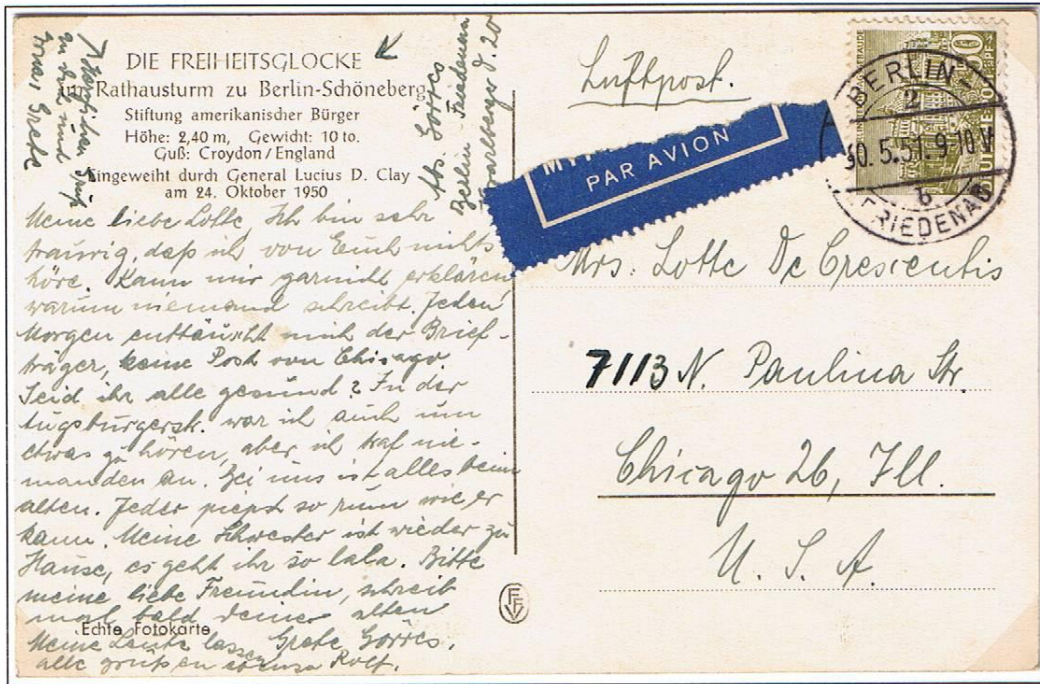 DIE FREIHEITSGLOCKE
im Rathausturm zu Berlin-Schöneberg
Stiftung amerikanischer Bürger
Höhe: 2,40 m, Gewicht: 10 to.
Guß: Croydon/England
Eingeweiht durch General Lucius D. Clay
am 24. Oktober 1950
Meine liebe Lotte, Ich bin sehr
traurig, daß ich von Euch nichts
höre. Kann mir garnicht erklären
warum niemand schreibt. Jeden
Morgen enttäuscht mich der Brief-
träger, keine Post von Chicago.
Seid ihr alle gesund? In der
Augsburgerstr. war ich auch um
etwas zu hören, aber ich traf nie-
manden an. Bei uns ist alles beim
alten. Jeder piepst so rum wie er
kann. Meine Schwester ist wieder zu
Hause, es geht ihr so lala. Bitte
meine liebe Freundin, schreib
mal bald Deiner alten
Grete Görres.
Meine Leute lassen
alle grüßen Rolf.
Echte Fotokarte
Herzlichen Gruß
Grete
Abs. Görres
Berlin-Friedenau
D. 20
Luftpost.
PAR AVION
BERLIN
2
30.5.51.9-10 V
b
FRIEDENAU
Mrs. Lotte De Crescentis
7113 N. Paulina Str.
Chicago 26, Ill.
U. S. A.